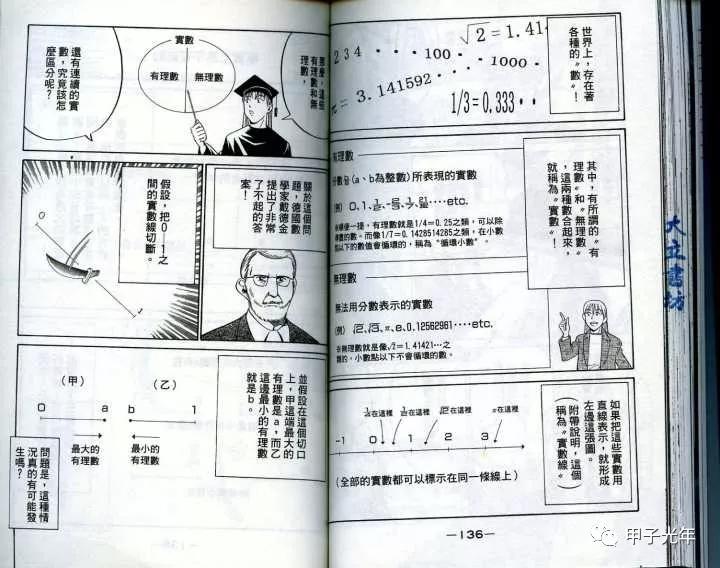 世界上，存在著
各種的〝數〞！
√2＝1.41
234・・・・100・・
＝3.141592・・・・1000・・
1/3=0.333・・
其中，有所謂的〝有
理數〞和〝無理數〞
，這兩種數合起來，
就稱為〝實數〞！
有理數
(a、b為整數)所表現的實數
便一提，有理數就是1/4＝0.25之類，可以除
數的數。而像1/7＝0.1428514285之類，在小數
以下的數值會循環的，稱為〝循環小數〞。
無理數
無法用分數表示的實數
(例) √2、√3、π、e、0.12562961・・・・etc.
※無理數就是像√2＝1.41421…之
類的，小數點以下不會循環的數。
如果把這些實數用
直線表示，就形成
左邊這張圖。
（附帶說明，這個
稱為〝實數線〞）
在這裡 在這裡 √2在這裡 π在這裡
-1 0 1 2 3
（全部的實數都可以標示在同一條線上）
—136—
那麼，這些
有理數和無
理數，
實數
有理數
無理數
還有連續的實
數，究竟該怎
麼區分呢？
關於這個問
題，德國數
學家戴德金
提出了非常
了不起的答
案！
假設，把0—1之
間的實數線切斷。
0
1
並假設在這個切口
上，甲這端最大的
有理數是a，而乙
這邊最小的有理數
就是b。
（甲）
（乙）
0 a b 1
最大的
有理數
最小的
有理數
問題是，這種情
況真的有可能發
生嗎？
大立書坊
甲子光年